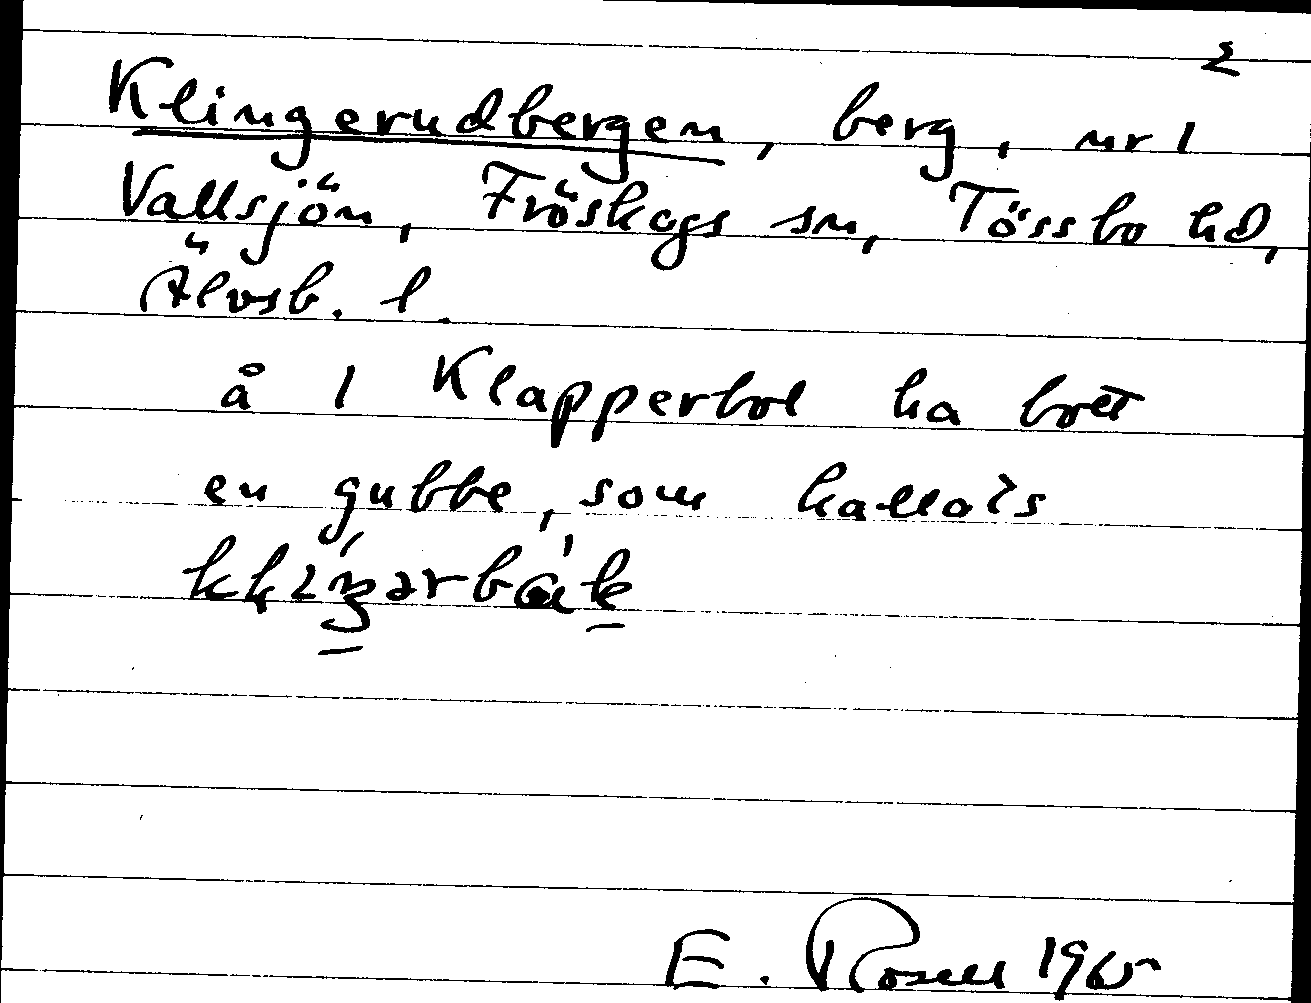 2
Klingerudbergen, berg, nr 1
Vallsjön, Fröskogs sn, Tössbo hd,
Älvsb. l.
å 1 Klapperbol ha bott
en gubbe, som kallats
E. Rosell 1965